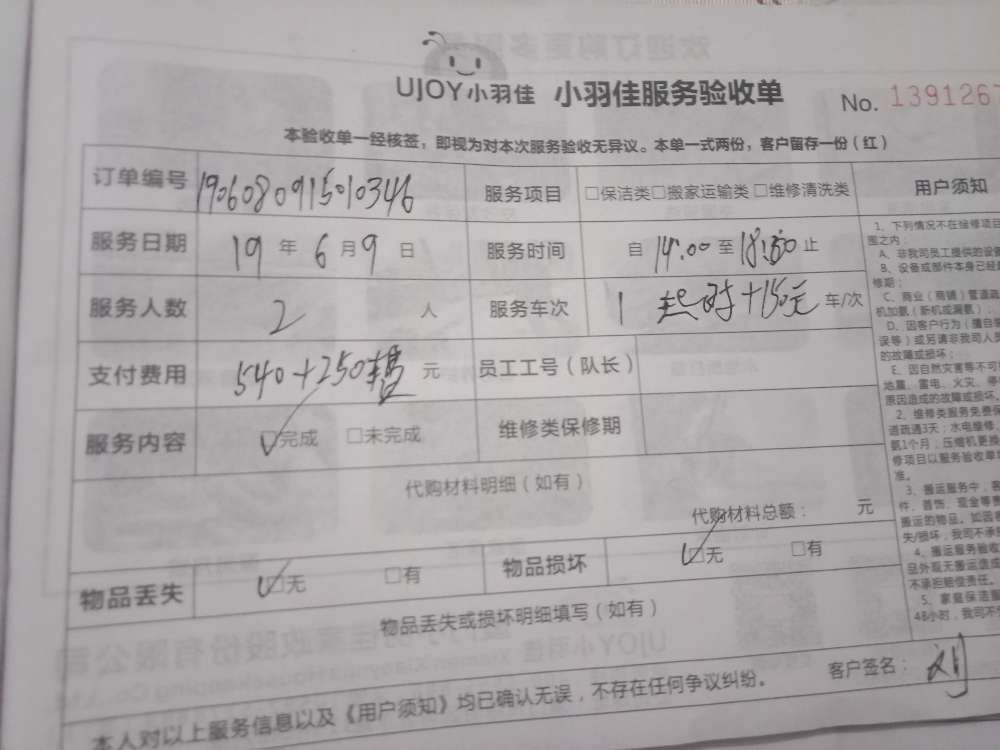 UJOY小羽佳 小羽佳服务验收单 No. 1391267
本验收单一经核签，即视为对本次服务验收无异议。本单一式两份，客户留存一份（红）
订单编号 1906080915010346 服务项目 □保洁类□搬家运输类□维修清洗类 用户须知
服务日期 19 年 6 月 9 日 服务时间 自 14:00 至 止
服务人数 2 人 服务车次 1 超时+150元 车/次
支付费用 540+250 元 员工工号（队长）
服务内容 ☑完成 □未完成 维修类保修期
代购材料明细（如有）
代购材料总额： 元
物品丢失 ☑无 □有 物品损坏 ☑无 □有
物品丢失或损坏明细填写（如有）
本人对以上服务信息以及《用户须知》均已确认无误，不存在任何争议纠纷。 客户签名： 刘
1、下列情况不在维修项目
围之内：
A、非我司员工提供的设备
B、设备或部件本身已经超
修期；
C、商业（商铺）管道疏
机加氨（新机或漏氨）；
D、因客户行为（擅自
误等）或另请非我司人员
的故障或损坏；
E、因自然灾害等不可
地震、雷电、火灾、停
原因造成的故障或损坏。
2、维修类服务免费保
道疏通3天；水电维修、
氨1个月；压缩机更换
修项目以服务验收单
准。
3、搬运服务中，客
件、首饰、现金等贵
搬运的物品。如因
失/损坏，我司不承担
4、搬运服务验收
品外观无搬运造成
不承担赔偿责任。
5、家庭保洁服
48小时，我司不